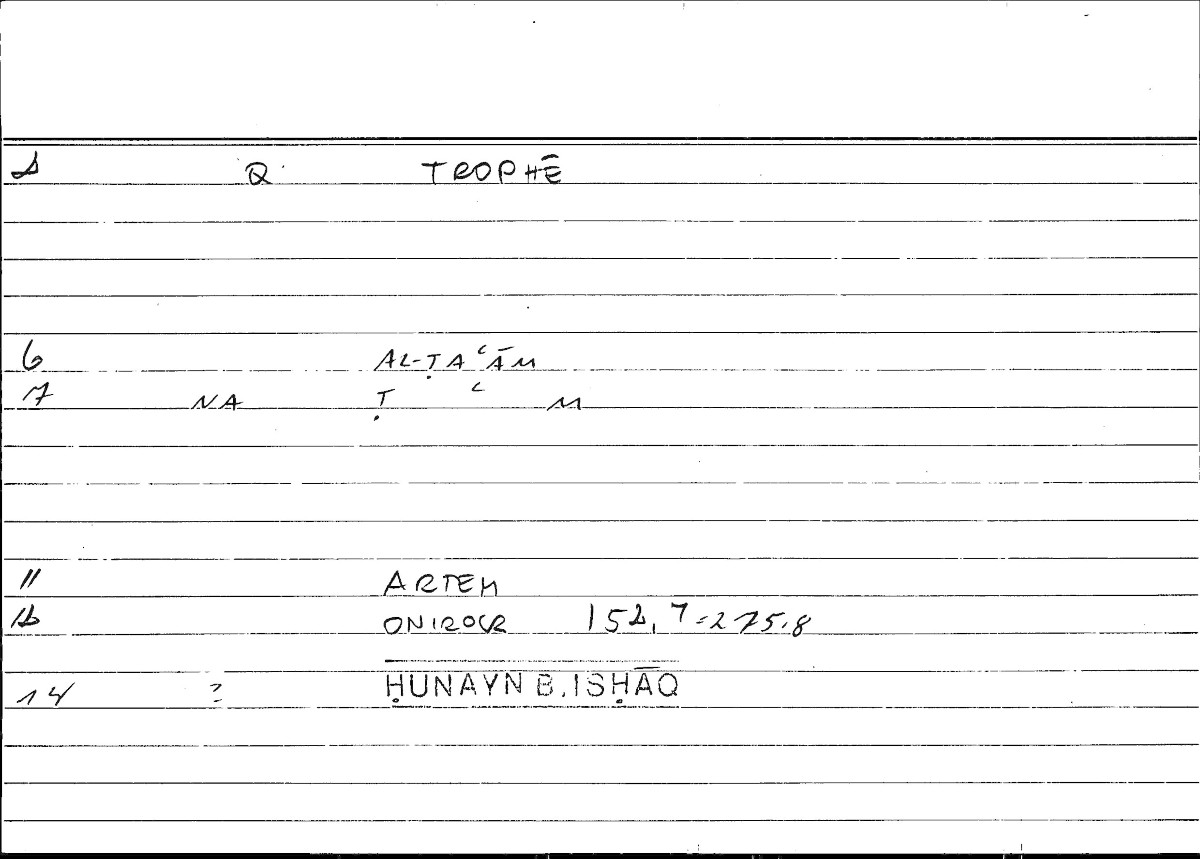 1 Q TROPHĒ
6 AL-ṬAʿĀM
7 NA Ṭ ʿ M
11 ARTEM
12 ONIROCR 152,7=275.8
14 ? ḤUNAYN B. ISḤĀQ